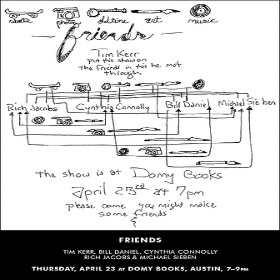 skate photo oldtime art music
friends
Tim Kerr
put this show on
the friends in this he met
through
Rich Jacobs Cynthia Connolly Bill Daniel Michael Sieben
The show is at Domy Books
April 23rd at 7pm
please come you might make
some friends
?
FRIENDS
TIM KERR, BILL DANIEL, CYNTHIA CONNOLLY
RICH JACOBS & MICHAEL SIEBEN
THURSDAY, APRIL 23 AT DOMY BOOKS, AUSTIN, 7–9PM